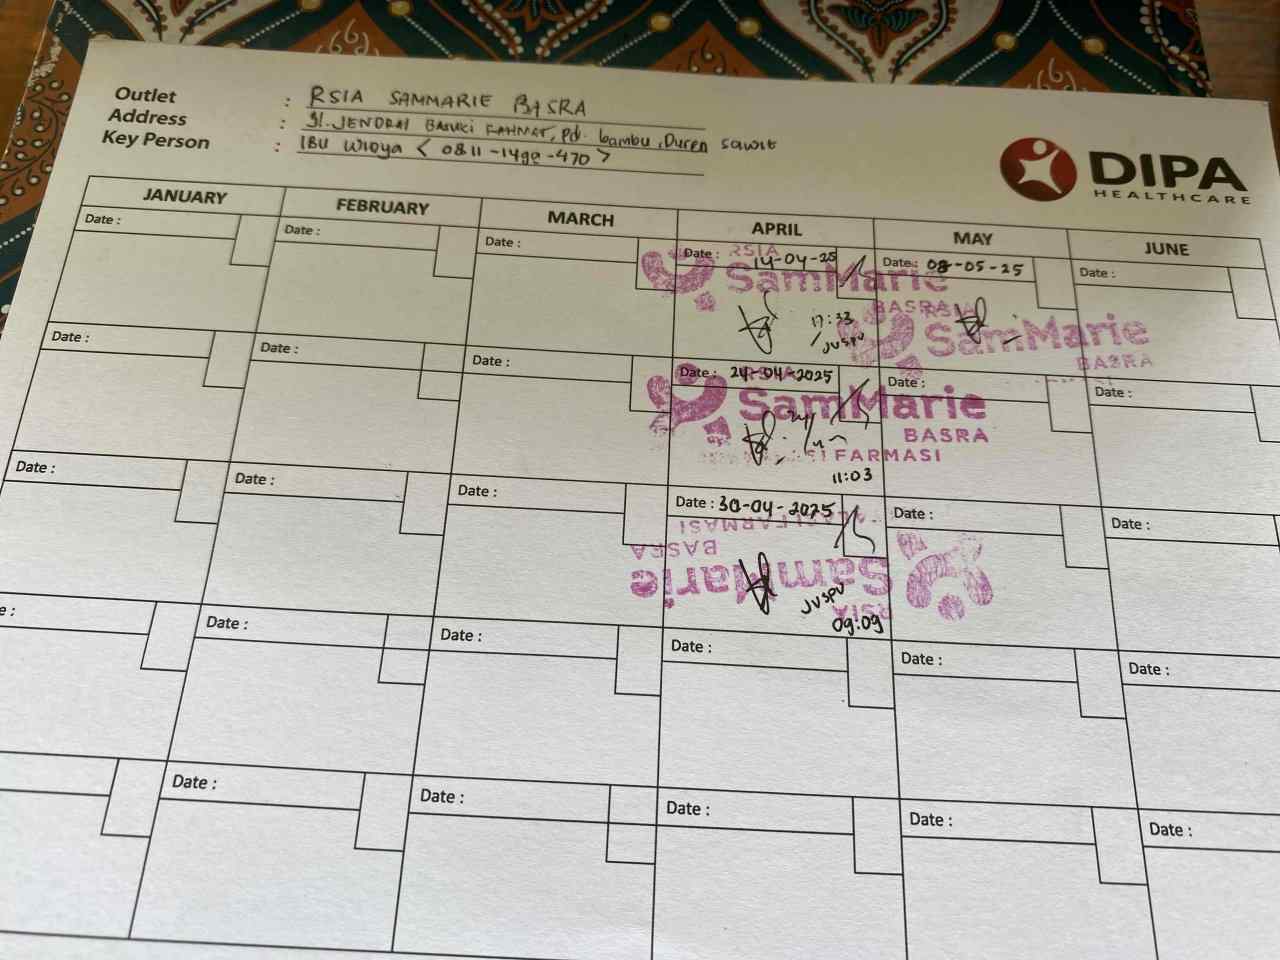 Outlet : RSIA SAMMARIE BASRA
Address : Jl. JENDRAL BASUKI RAHMAT, Pd. bambu, Duren sawit
Key Person : IBU WIDYA
DIPA
HEALTHCARE
JANUARY FEBRUARY MARCH APRIL MAY JUNE
Date : Date : Date : Date : 14-04-25 Date : 08-05-25 Date :
RSIA
SamMarie
BASRA
17:33
SamMarie
BASRA
Date : Date : Date : Date : 24-04-2025 Date : Date :
SamMarie
BASRA
FARMASI
11:03
Date : Date : Date : Date : 30-04-2025 Date : Date :
FARMASI
BASRA
SamMarie
RSIA
09:09
Date : Date : Date : Date : Date :
Date : Date : Date : Date : Date :